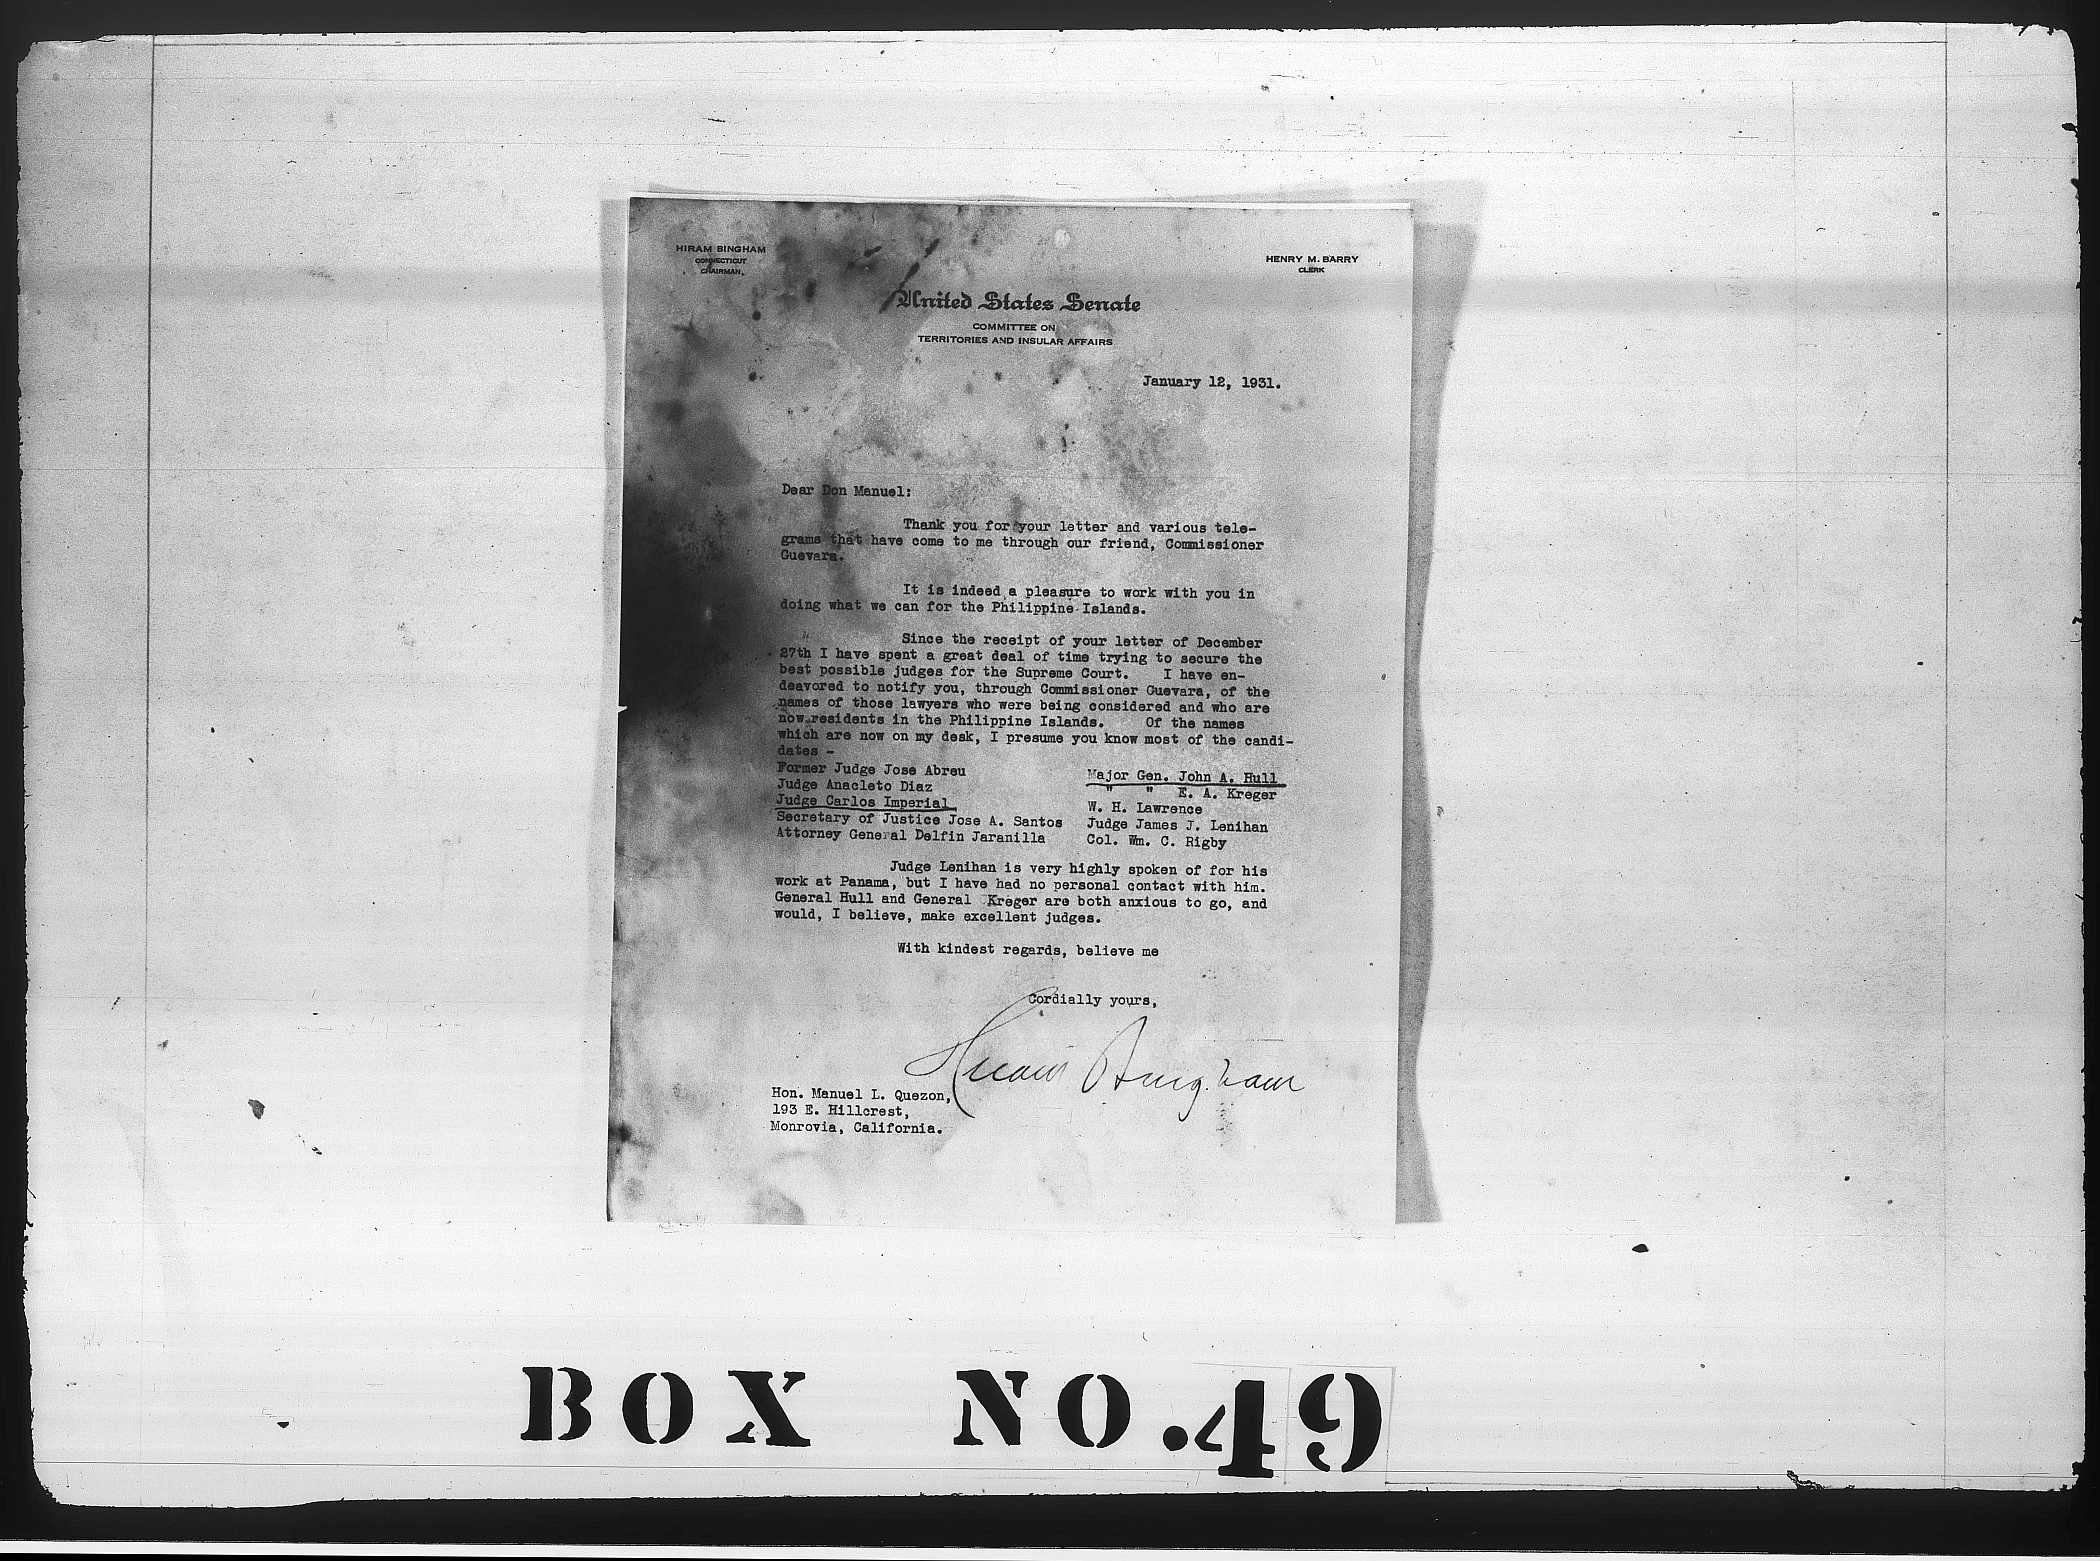 HIRAM BINGHAM
CONNECTICUT
CHAIRMAN.
HENRY M. BARRY
CLERK
United States Senate
COMMITTEE ON
TERRITORIES AND INSULAR AFFAIRS
January 12, 1931.
Dear Don Manuel:
Thank you for your letter and various tele-
grams that have come to me through our friend, Commissioner
Guevara.
It is indeed a pleasure to work with you in
doing what we can for the Philippine Islands.
Since the receipt of your letter of December
27th I have spent a great deal of time trying to secure the
best possible judges for the Supreme Court. I have en-
deavored to notify you, through Commissioner Guevara, of the
names of those lawyers who were being considered and who are
now residents in the Philippine Islands. Of the names
which are now on my desk, I presume you know most of the candi-
dates -
Former Judge Jose Abreu
Judge Anacleto Diaz
Judge Carlos Imperial
Secretary of Justice Jose A. Santos
Attorney General Delfin Jaranilla
Major Gen. John A. Hull
" " E. A. Kreger
W. H. Lawrence
Judge James J. Lenihan
Col. Wm. C. Rigby
Judge Lenihan is very highly spoken of for his
work at Panama, but I have had no personal contact with him.
General Hull and General Kreger are both anxious to go, and
would, I believe, make excellent judges.
With kindest regards, believe me
Cordially yours,
Hiram Bingham
Hon. Manuel L. Quezon,
193 E. Hillcrest,
Monrovia, California.
BOX NO.49